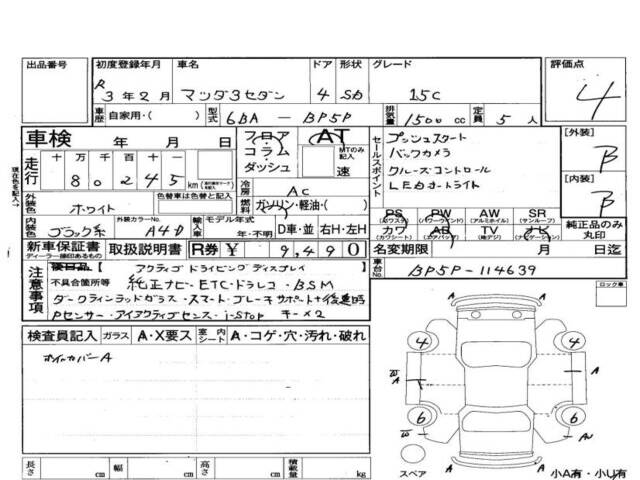 出品番号 初度登録年月 車名 ドア 形状 グレード 評価点
R 3年2月 マツダ3セダン 4 SD 15C 4
車歴 自家用・( ) 型式 6BA-BP5P 排気量 1500 cc 定員 5人
車検 年 月 日 フロア コラム ダッシュ AT MTのみ記入 速
走行 十 万 千 百 十 一
8 0 2 4 5 km
冷房 AC
燃料 ガソリン・軽油・( )
外装色 ホワイト 色替車は色替と記入
内装色 ブラック系 外装カラーNo. A4D 輸入車 モデル年式 年・不明 D車・並 右H・左H
セールスポイント
プッシュスタート
バックカメラ
クルーズコントロール
LEDオートライト
[外装] B
[内装] B
PS PW AW SR
(パワステ) (パワーウインド) (アルミホイル) (サンルーフ)
カワ AB TV ナビ
(カワシート) (エアバッグ) (地デジ) (ナビゲーション)
純正品のみ丸印
新車保証書 取扱説明書 R券 ¥ 9,490 名変期限 月 日迄
ディーラー捺印あるもの
車台No. BP5P-114639
現在色を記入↑
注意事項 後日品 不具合箇所等
アクティブドライビングディスプレイ
純正ナビ・ETC・ドラレコ・BSM
ダークティンテッドガラス・スマートブレーキサポート+後退時
Pセンサー・アイアクティブセンス・i-stop キー×2
ロック車
検査員記入 ガラス A・X要ス 室内シート A・コゲ・穴・汚れ・破れ
ホイールカバーA
4 4
W A A
6 6
W AU
A
スペア
小A有・小U有
長さ cm 幅 cm 高さ cm 積載量 kg